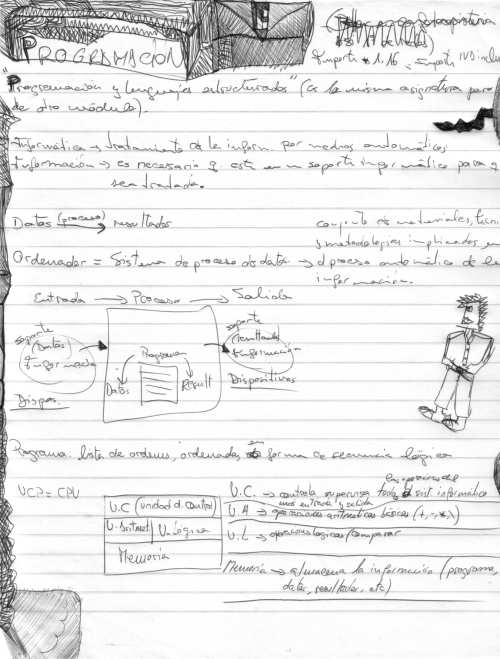 PROGRAMACIÓN
Importe * 1.16 = Importe IVA inclui
"Programación y lenguajes estructurados" (es la misma asignatura pero
de otro módulo).
Informática → tratamiento de la inform. por medios automáticos
Información → es necesario q esté en un soporte informático para q
sea tratada.
Datos (proceso) → resultados
conjunto de materiales, técni
y metodologías implicadas en
Ordenador = Sistema de proceso de datos → el proceso automático de la
información.
Entrada → Proceso → Salida
soporte
Datos
Información
Dispos.
Programa
Datos
Result
soporte
resultados
Información
Dispositivos
Programa: lista de ordenes, ordenadas en forma de secuencia lógica
UCP = CPU
U.C (unidad d. control)
U. Aritmet
U. Lógica
Memoria
las operaciones del
U.C. → controla supervisa toda el sist. informático
entrada y salida
U.A → operaciones aritméticas básicas (+, -, *, \)
U.L → operaciones lógicas/comparar
Memoria → almacena la información (programa,
datos, resultados, etc)